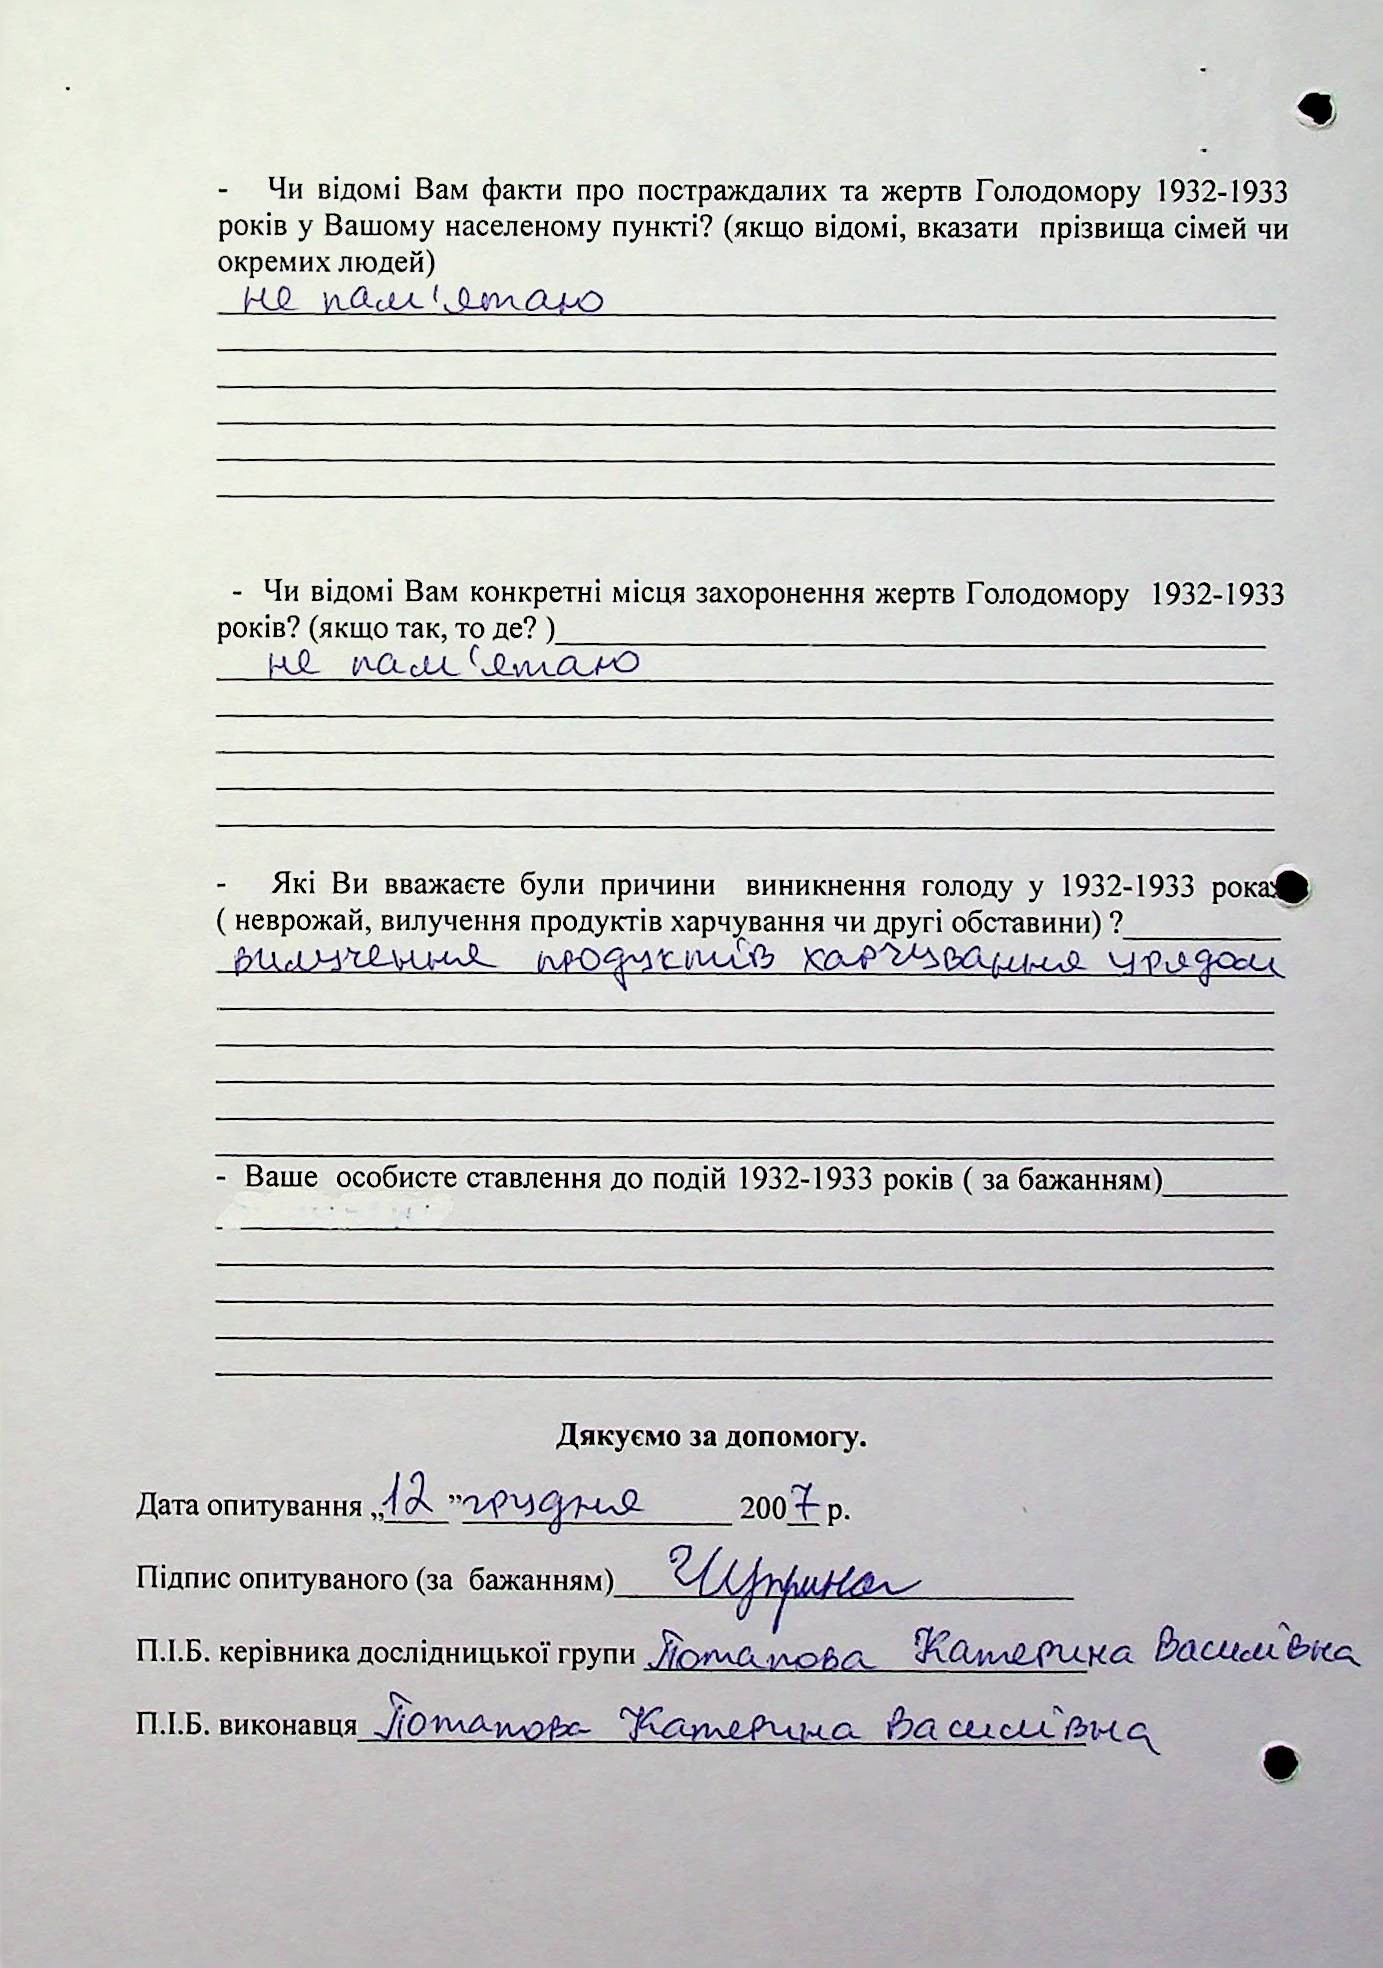 - Чи відомі Вам факти про постраждалих та жертв Голодомору 1932-1933
років у Вашому населеному пункті? (якщо відомі, вказати прізвища сімей чи
окремих людей)
не пам'ятаю
- Чи відомі Вам конкретні місця захоронення жертв Голодомору 1932-1933
років? (якщо так, то де? )
не пам'ятаю
- Які Ви вважаєте були причини виникнення голоду у 1932-1933 роках
( неврожай, вилучення продуктів харчування чи другі обставини) ?
вилучення продуктів харчування урядом
- Ваше особисте ставлення до подій 1932-1933 років ( за бажанням)
Дякуємо за допомогу.
Дата опитування „12 ” грудня 2007 р.
Підпис опитуваного (за бажанням)
П.І.Б. керівника дослідницької групи Потапова Катерина Василівна
П.І.Б. виконавця Потапова Катерина Василівна